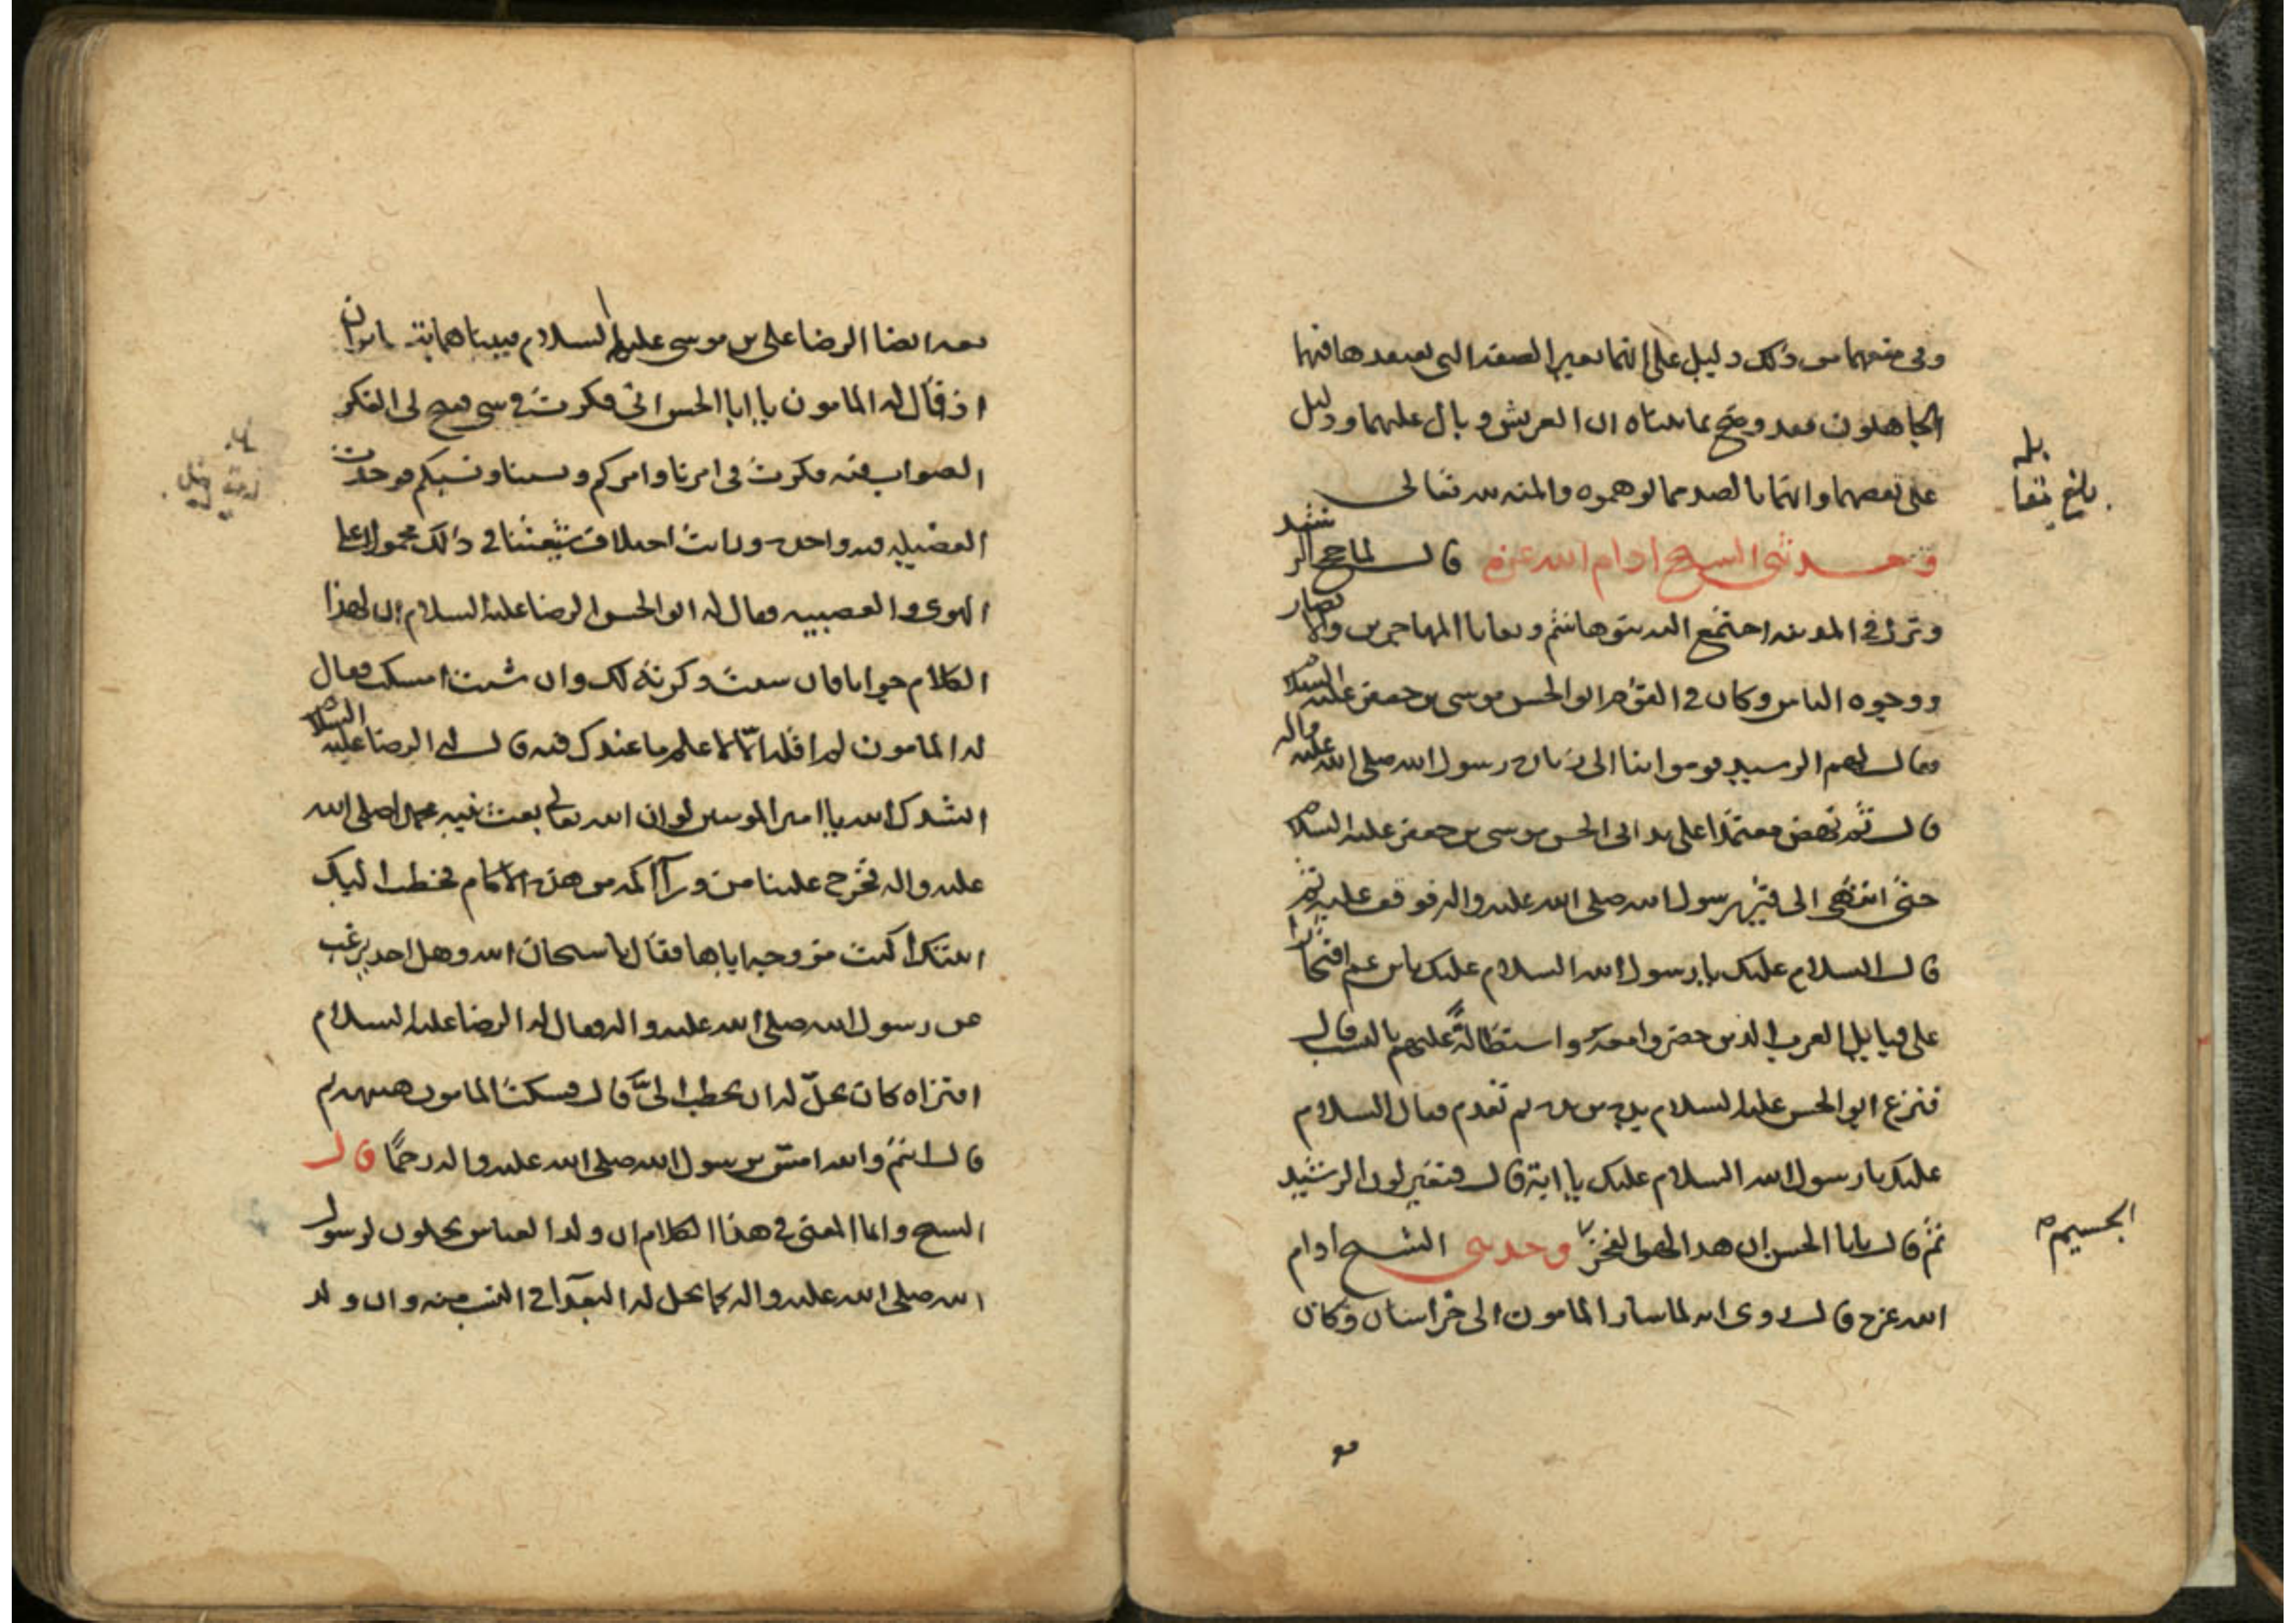 وفي منعهما من ذلك دليل على انهما بغير الصفة التي يعتقدها فيهما
الجاهلون فقد وضح بما بيناه ان العريش وبال عليهما ودليل
على نقصهما وانهما بالضد مما توهموه والمنة لله تعالى
وحدثني الشيخ ادام الله عزه قال لما حج الرشيد
ونزل في المدينة اجتمع اليه بنو هاشم وبقايا المهاجرين والانصار
ووجوه الناس وكان في القوم ابو الحسن موسى بن جعفر عليه السلام
فقال لهم الرشيد قوموا بنا الى زيارة رسول الله صلى الله عليه واله
قال ثم نهض معتمدا على يد ابي الحسن موسى بن جعفر عليه السلام
حتى انتهى الى قبر رسول الله صلى الله عليه واله فوقف عليه ثم
قال السلام عليك يا رسول الله السلام عليك يا بن عم افتخارا
على قبايل العرب الذين حضروا معه واستطالة عليهم بالنسب قال
فنزع ابو الحسن عليه السلام يده من يده ثم تقدم فقال السلام
عليك يا رسول الله السلام عليك يا ابة قال فتغير لون الرشيد
ثم قال يابا الحسن ان هذا لهو الفخر وحدثني الشيخ ادام
الله عزه قال روى انه لما سار المامون الى خراسان وكان
بلغ مقابله
الجسيم
معه ايضا الرضا على بن موسى عليهما السلام فبينا هما يتسايران
اذ قال له المامون يا ابا الحسن اني فكرت في شى فنتج لى الفكر
الصواب فيه فكرت في امرنا وامركم ونسبنا ونسبكم فوجدت
الفضيلة فيه واحدة ورايت اختلاف شيعتنا في ذلك محمولا على
الهوى والعصبيه فقال له ابو الحسن الرضا عليه السلام ان لهذا
الكلام جوابا فان شئت ذكرته لك وان شئت امسكت فقال
له المامون لم اقله الا لاعلم ما عندك فيه قال له الرضا عليه السلام
انشدك الله يا امير المومنين لو ان الله تعالى بعث نبيه محمدا صلى الله
عليه واله فخرج علينا من ورآ اكمة من هذه الاكام فخطب اليك
ابنتك اكنت مزوجه اياها فقال يا سبحان الله وهل احد يرغب
عن رسول الله صلى الله عليه واله فقال له الرضا عليه السلام
افتراه كان يحل له ان يخطب الىّ قال فسكت المامون هنيهة ثم
قال انتم والله امس برسول الله صلى الله عليه واله رحما قال
الشيخ وانما المعنى في هذا الكلام ان ولد العباس يحلون لرسول
الله صلى الله عليه واله كما يحل له البعدآ في النسب منه وان ولد